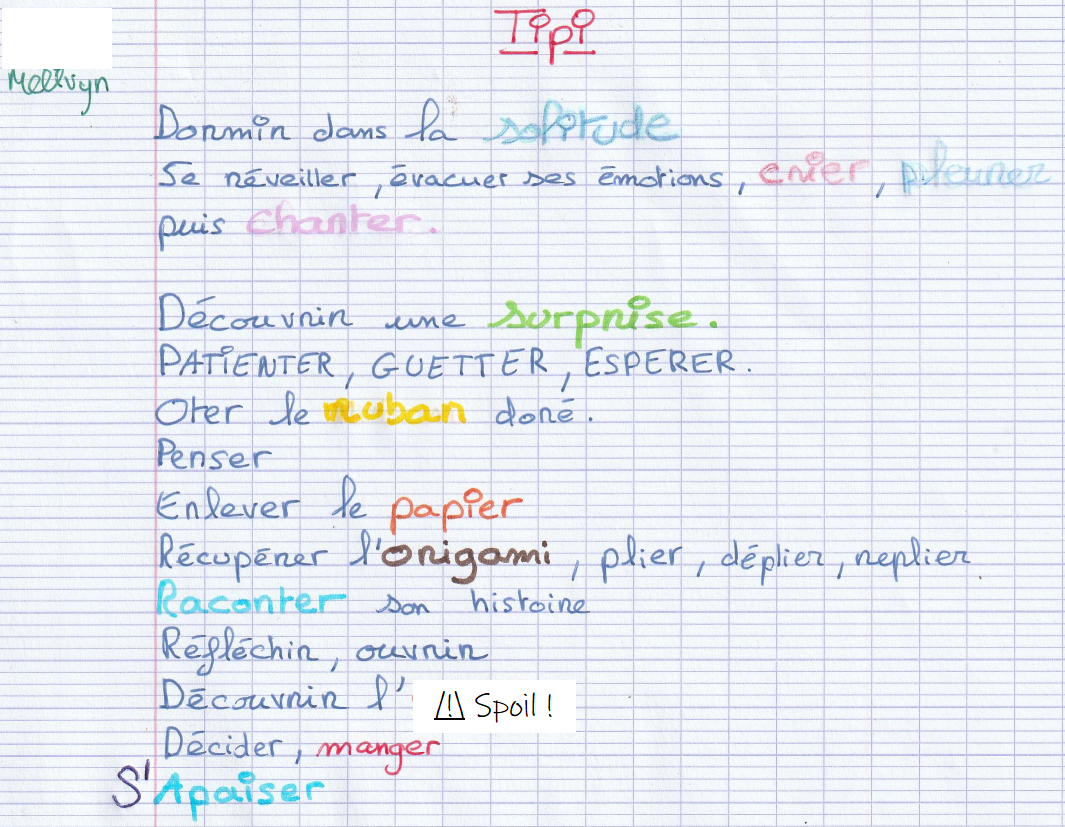 Tipi
Mellvyn
Dormir dans la solitude
Se réveiller, évacuer ses émotions, crier, pleurer
puis chanter.
Découvrir une surprise.
PATIENTER, GUETTER, ESPERER.
Oter le ruban doré.
Penser
Enlever le papier
Récupérer l'origami, plier, déplier, replier
Raconter son histoire
Réfléchir, ouvrir
Découvrir l' /!\ Spoil !
Décider, manger
S'Apaiser